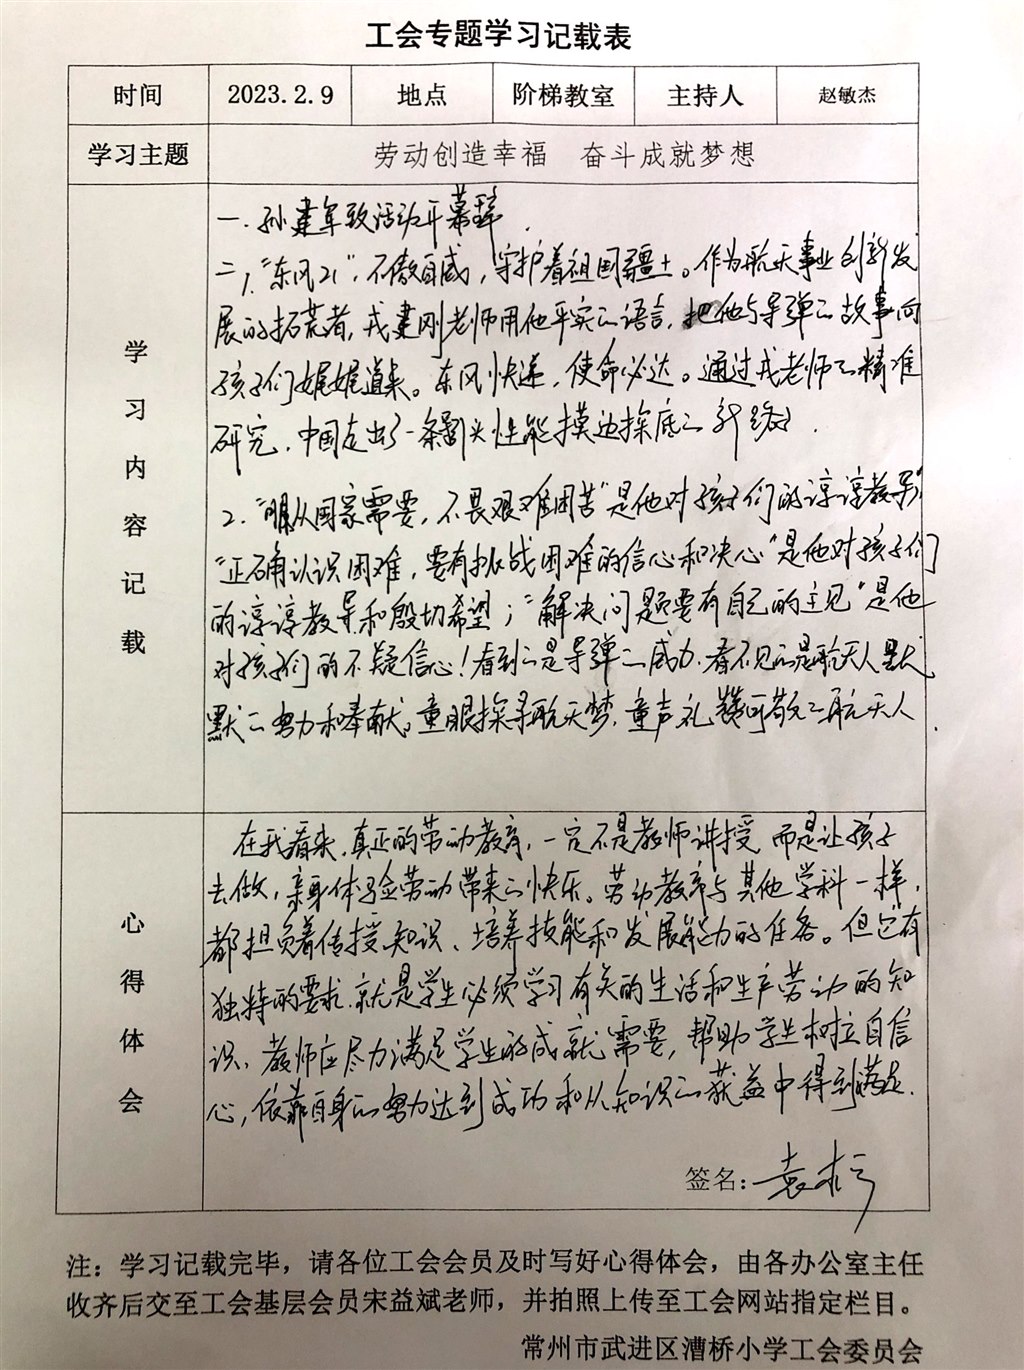 工会专题学习记载表
时间 2023.2.9 地点 阶梯教室 主持人 赵敏杰
学习主题 劳动创造幸福 奋斗成就梦想
学习内容记载
一.孙建军致活动开幕辞.
二,1."东风21",不傲自威,守护着祖国疆土。作为航天事业创新发
展的拓荒者,戎建刚老师用他平实的语言,把他与导弹的故事向
孩子们娓娓道来。东风快递,使命必达。通过戎老师的精准
研究,中国走出了一条弹头性能摸边探底的新路.
2."服从国家需要,不畏艰难困苦"是他对孩子们的谆谆教导
"正确认识困难,要有挑战困难的信心和决心"是他对孩子们
的谆谆教导和殷切希望;"解决问题要有自己的主见"是他
对孩子们的不疑信心!看到的是导弹的威力,看不见的是航天人默
默的努力和奉献。童眼探寻航天梦,童声礼赞可敬的航天人.
心得体会
在我看来,真正的劳动教育,一定不是教师讲授,而是让孩子
去做,亲身体验劳动带来的快乐。劳动教育与其他学科一样,
都担负着传授知识、培养技能和发展能力的任务。但它有
独特的要求,就是学生必须学习有关的生活和生产劳动的知
识,教师应尽力满足学生的成就需要,帮助学生树立自信
心,依靠自身的努力达到成功和从知识的获益中得到满足.
签名:袁
注：学习记载完毕，请各位工会会员及时写好心得体会，由各办公室主任
收齐后交至工会基层会员宋益斌老师，并拍照上传至工会网站指定栏目。
常州市武进区漕桥小学工会委员会